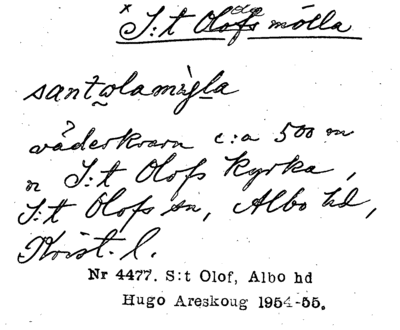 × S:t Olofs mölla
santolamigla
väderkvarn c:a 500 m
n S:t Olofs kyrka,
S:t Olofs sn, Albo hd,
Krist. l.
Nr 4477. S:t Olof, Albo hd
Hugo Areskoug 1954-55.